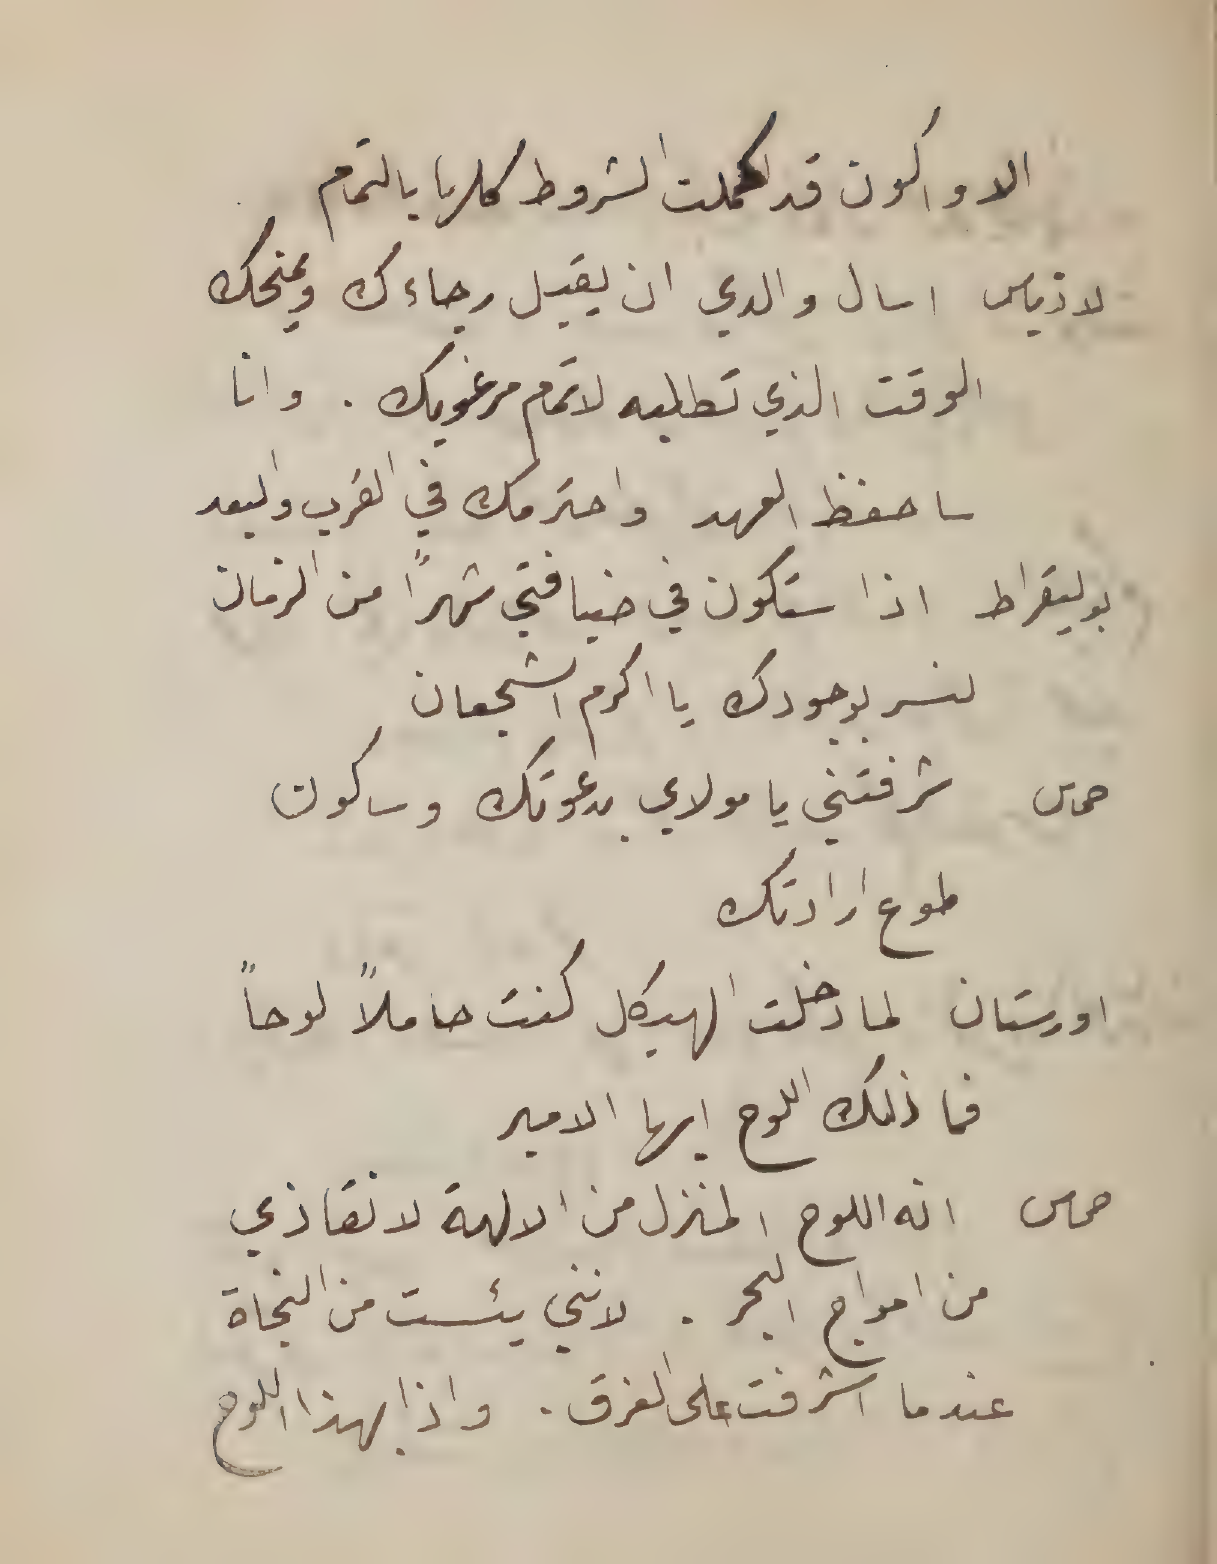 الا واكون قد اكملت الشروط كلها بالتمام
لاذياس اسال والدي ان يقبل رجاءك ويمنحك
الوقت الذي تطلبه لاتمام مرغوبك . وانا
ساحفظ العهد واحترمك في القرب والبعد
بوليقراط اذا ستكون في ضيافتي شهراً من الزمان
لنسر بوجودك يا اكرم الشجعان
حماس شرفتني يا مولاي بدعوتك وساكون
طوع ارادتك
اورستان لما دخلت الهيكل كنت حاملاً لوحاً
فما ذلك اللوح ايها الامير
حماس انه اللوح المنزل من الالهة لانقاذي
من امواج البحر . لانني يئست من النجاة
عندما اشرفت على الغرق . واذا بهذا اللوح